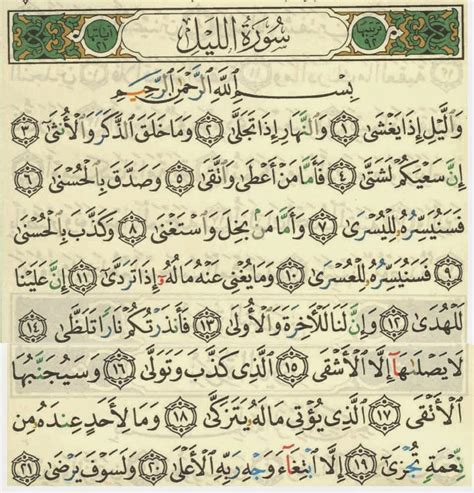 ترتيبها ٩٢ سُورَةُ اللَّيْلِ آياتها ٢١
بِسْمِ ٱللَّهِ ٱلرَّحْمَٰنِ ٱلرَّحِيمِ
وَٱلَّيْلِ إِذَا يَغْشَىٰ ١ وَٱلنَّهَارِ إِذَا تَجَلَّىٰ ٢ وَمَا خَلَقَ ٱلذَّكَرَ وَٱلْأُنثَىٰ ٣
إِنَّ سَعْيَكُمْ لَشَتَّىٰ ٤ فَأَمَّا مَنْ أَعْطَىٰ وَٱتَّقَىٰ ٥ وَصَدَّقَ بِٱلْحُسْنَىٰ ٦
فَسَنُيَسِّرُهُۥ لِلْيُسْرَىٰ ٧ وَأَمَّا مَنۢ بَخِلَ وَٱسْتَغْنَىٰ ٨ وَكَذَّبَ بِٱلْحُسْنَىٰ
٩ فَسَنُيَسِّرُهُۥ لِلْعُسْرَىٰ ١٠ وَمَا يُغْنِى عَنْهُ مَالُهُۥٓ إِذَا تَرَدَّىٰٓ ١١ إِنَّ عَلَيْنَا
لَلْهُدَىٰ ١٢ وَإِنَّ لَنَا لَلْـَٔاخِرَةَ وَٱلْأُولَىٰ ١٣ فَأَنذَرْتُكُمْ نَارًا تَلَظَّىٰ ١٤
لَا يَصْلَىٰهَآ إِلَّا ٱلْأَشْقَى ١٥ ٱلَّذِى كَذَّبَ وَتَوَلَّىٰ ١٦ وَسَيُجَنَّبُهَا
ٱلْأَتْقَى ١٧ ٱلَّذِى يُؤْتِى مَالَهُۥ يَتَزَكَّىٰ ١٨ وَمَا لِأَحَدٍ عِندَهُۥ مِن
نِّعْمَةٍ تُجْزَىٰٓ ١٩ إِلَّا ٱبْتِغَآءَ وَجْهِ رَبِّهِ ٱلْأَعْلَىٰ ٢٠ وَلَسَوْفَ يَرْضَىٰ ٢١